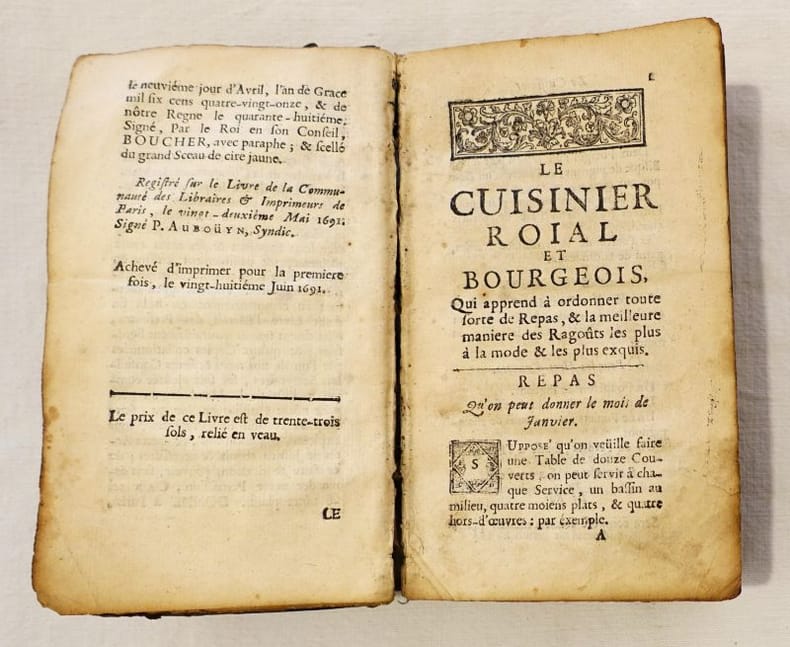 le neuviéme jour d'Avril, l'an de Grace
mil six cens quatre-vingt-onze, & de
nôtre Regne le quarante-huitiéme;
Signé, Par le Roi en son Conseil,
BOUCHER, avec paraphe; & scellé
du grand Sceau de cire jaune.
Registré sur le Livre de la Commu-
nauté des Libraires & Imprimeurs de
Paris, le vingt-deuxiéme Mai 1691.
Signé P. AUBOÜYN, Syndic.
Achevé d'imprimer pour la premiere
fois, le vingt-huitiéme Juin 1691.
Le prix de ce Livre est de trente-trois
sols, relié en veau.
LE
LE
CUISINIER
ROIAL
ET
BOURGEOIS,
Qui apprend à ordonner toute
sorte de Repas, & la meilleure
maniere des Ragoûts les plus
à la mode & les plus exquis.
REPAS
Qu'on peut donner le mois de
Janvier.
SUPPOSE' qu'on veüille faire
une Table de douze Cou-
verts; on peut servir à cha-
que Service, un bassin au
milieu, quatre moiens plats, & quatre
hors-d'œuvres: par exemple.
A